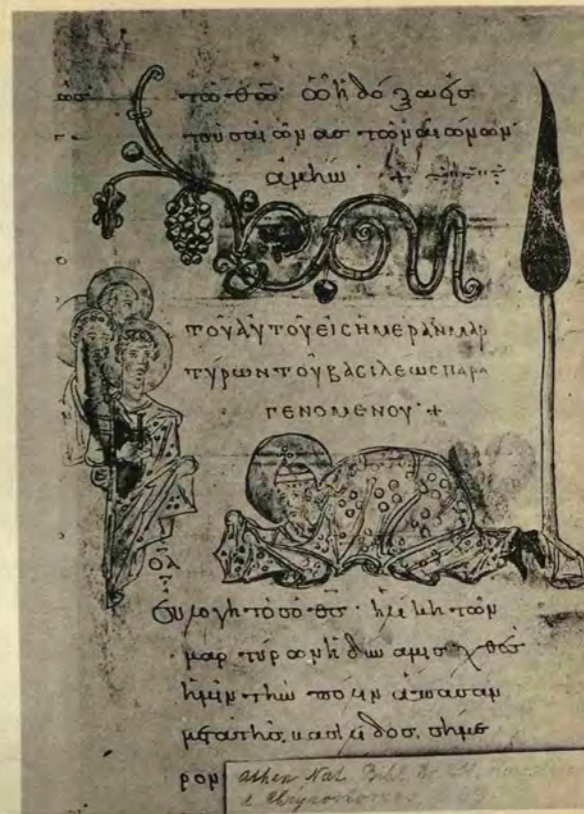 τῶ θῶ· ὧ ἡ δόξα εἰς
τοὺς αἰῶνας τῶν αἰώνων·
ἀμήν +
ΤΟΥ ΑΥΤΟΥ ΕΙC ΗΜΕΡΑΝ ΜΑΡ
ΤΥΡΩΝ ΤΟΥ ΒΑCΙΛΕΩC ΠΑΡΑ
ΓΕΝΟΜΕΝΟΥ· +
Εὐλογητὸς ὁ θς· τῶν
μαρτύρων ἡ δύναμις χθὲς
ἡμῖν τὴν πόλιν ἅπασαν
μετὰ τῆς βασιλίδος. σήμε
ρον
Athen Nat. Bibl.
Chrysostomos